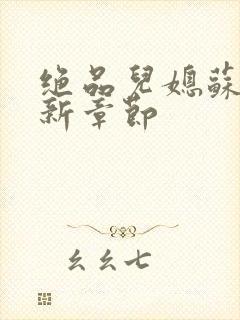 绝品兒媳蘇
新章節
幺幺七